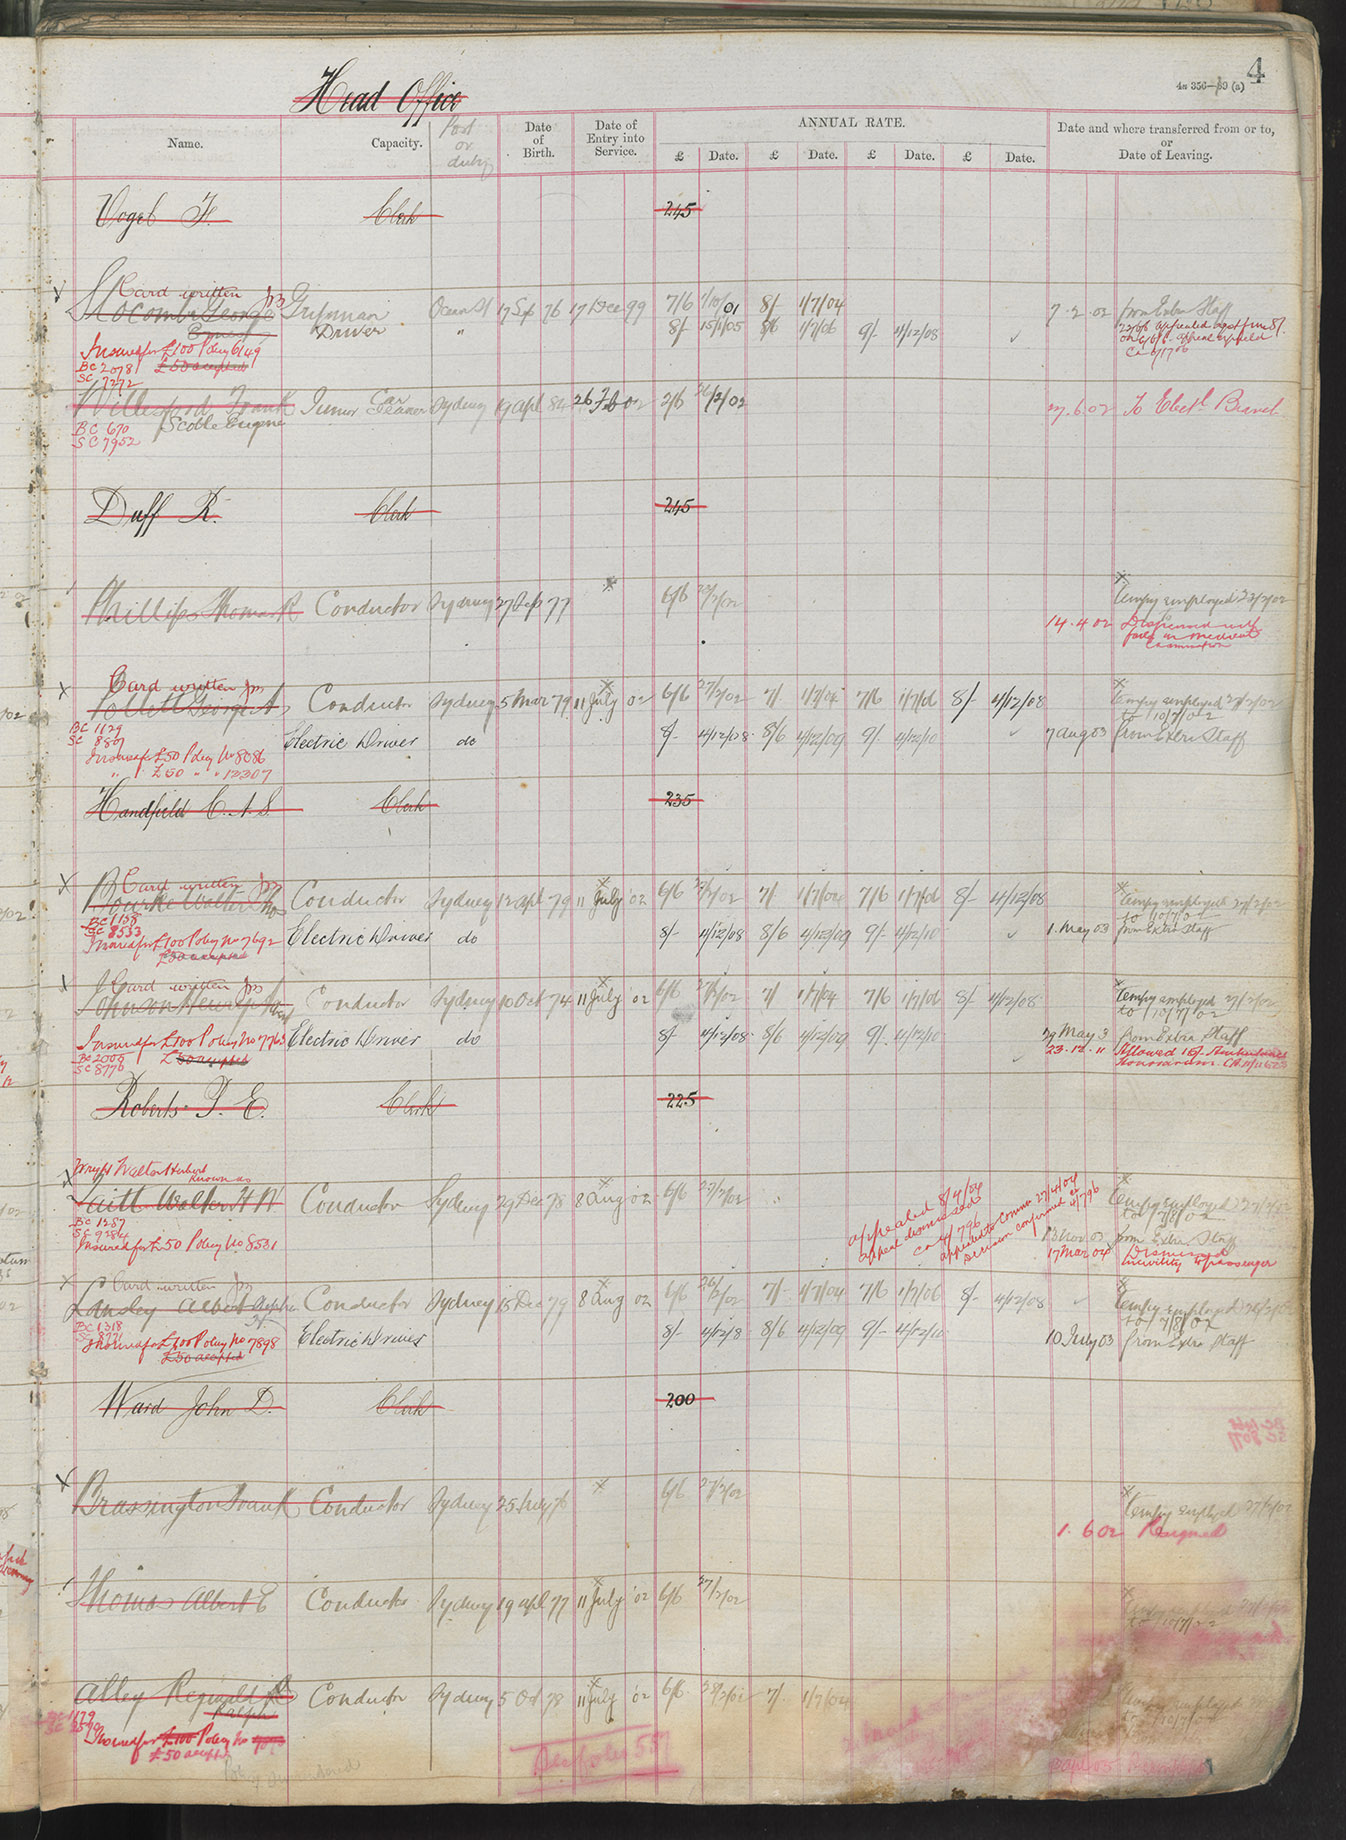 4
4a 356—89 (a)
Head Office
Name. Capacity. Post or duty Date of Birth. Date of Entry into Service. ANNUAL RATE. Date and where transferred from or to, or Date of Leaving.
£ Date. £ Date. £ Date. £ Date.
Vogel F. Clerk 245
Card written
Slocombe George Gripman Ocean St 17 Sep 76 17 Dec 99 7/6 01 8/- 1/7/04 7 . 2 . 02 from Extra Staff
Ernest Driver " 8/- 15/1/05 8/6 1/7/06 9/- 4/12/08
Insured for £100 Policy 6149
BC 2078 £50 accepted
SC 7272
Willesford Frank Junior Car Cleaner Sydney 19 Apl 84 26 Feb 02 2/6 26/2/02 27.6.02 To Elect. Branch
BC 670 Scoble Eugene
SC 7952
Duff R. Clerk 245
Phillips Thomas R Conductor Sydney 27 Sep 77 6/6 Tempy employed
14.4.02 Dispensed with
fails in medical
examination
Card written
Pollett George A Conductor Sydney 5 Mar 79 11 July 02 6/6 27/2/02 7/- 1/7/04 7/6 1/7/06 8/- 4/12/08 Tempy employed 27/2/02
to 10/7/02
BC 1129
SC 8807 Electric Driver do 8/- 4/12/08 8/6 4/12/09 9/- 4/12/10 7 Aug 03 from Extra Staff
Insured for £50 Policy No 8086
" " £50 " " 12307
Handfield C. A. S. Clerk 235
Card written
Bourke Walter Thos Conductor Sydney 12 Apl 79 11 July 02 6/6 27/2/02 7/- 1/7/04 7/6 1/7/06 8/- 4/12/08 Tempy employed 27/2/02
to 10/7/02
BC 1138
SC 8533 Electric Driver do 8/- 4/12/08 8/6 4/12/09 9/- 4/12/10 1 May 03 from Extra Staff
Insured for £100 Policy No 7692
£50 accepted
Card written
Johnson Henry Conductor Sydney 10 Oct 74 11 July 02 6/6 27/2/02 7/- 1/7/04 7/6 1/7/06 8/- 4/12/08 Tempy employed 27/2/02
to 10/7/02
Insured for £100 Policy No 7763 Electric Driver do 8/- 4/12/08 8/6 4/12/09 9/- 4/12/10 29 May 3 from Extra Staff
BC 2000 £50 accepted 23.12.11 Allowed Ambulance
SC 8776 Honorarium
Roberts T. E. Clerk 225
Wright Walter Herbert
known as
Walter H W Conductor Sydney 29 Dec 78 8 Aug 02 6/6 27/2/02 Tempy employed 27/2/02
to 7/8/02
BC 1287
SC 9284 appealed 8/4/04
appeal dismissed
Ca 4/796
appealed to Commr 27/4/04
Decision confirmed Ca 4/796
Insured for £50 Policy No 8531 13 Nov 03 from Extra Staff
17 Mar 04 Dismissed
incivility to passenger
Card written
Lansley Albert Conductor Sydney 15 Dec 79 8 Aug 02 6/6 26/2/02 7/- 1/7/04 7/6 1/7/06 8/- 4/12/08 Tempy employed 26/2/02
to 7/8/02
BC 1318
SC 8771 Electric Driver 8/- 4/12/8 8/6 4/12/09 9/- 4/12/10 10 July 03 from Extra Staff
Insured for £100 Policy No 7898
£50 accepted
Ward John D. Clerk 200
Brassington Frank Conductor Sydney 25 July 76 6/6 27/2/02 Tempy employed 27/2/02
1.6.02 Resigned
Thomas Albert E Conductor Sydney 19 Apl 77 11 July 02 6/6 27/2/02
to 10/7/02
Alley Reginald Conductor Sydney 5 Oct 78 11 July 02 6/6 7/- 1/7/04
Ralph
BC 1179
Insured for £100 Policy No
£50 accepted